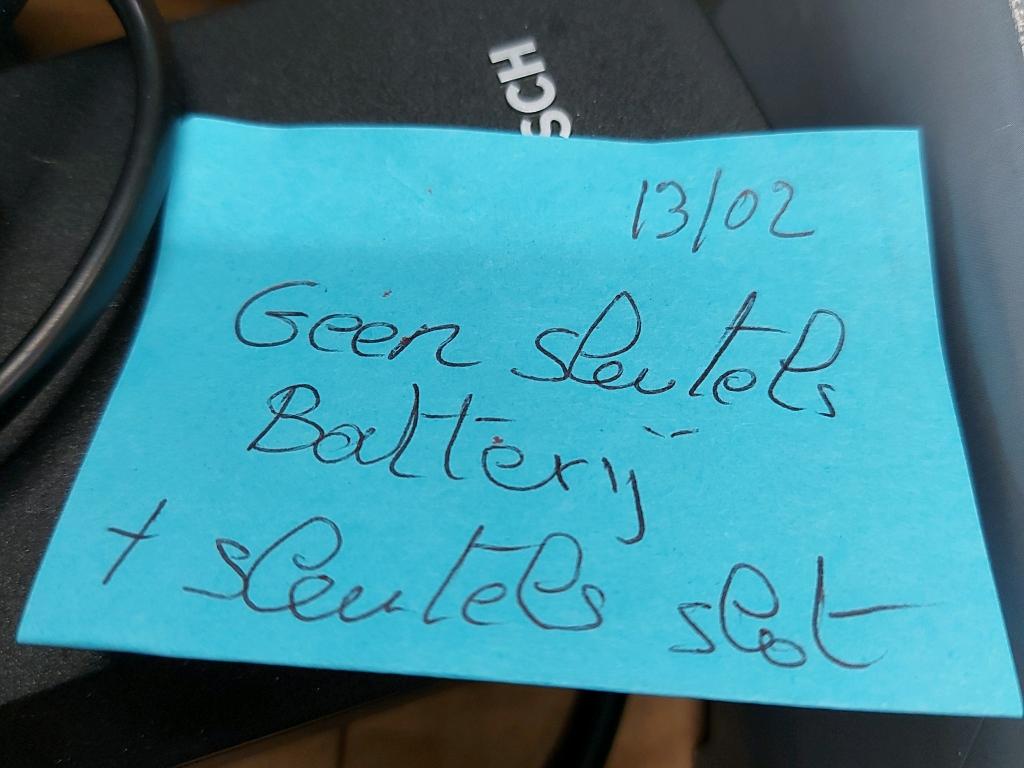 SCH
13/02
Geen sleutels
Batterij
+ sleutels slot